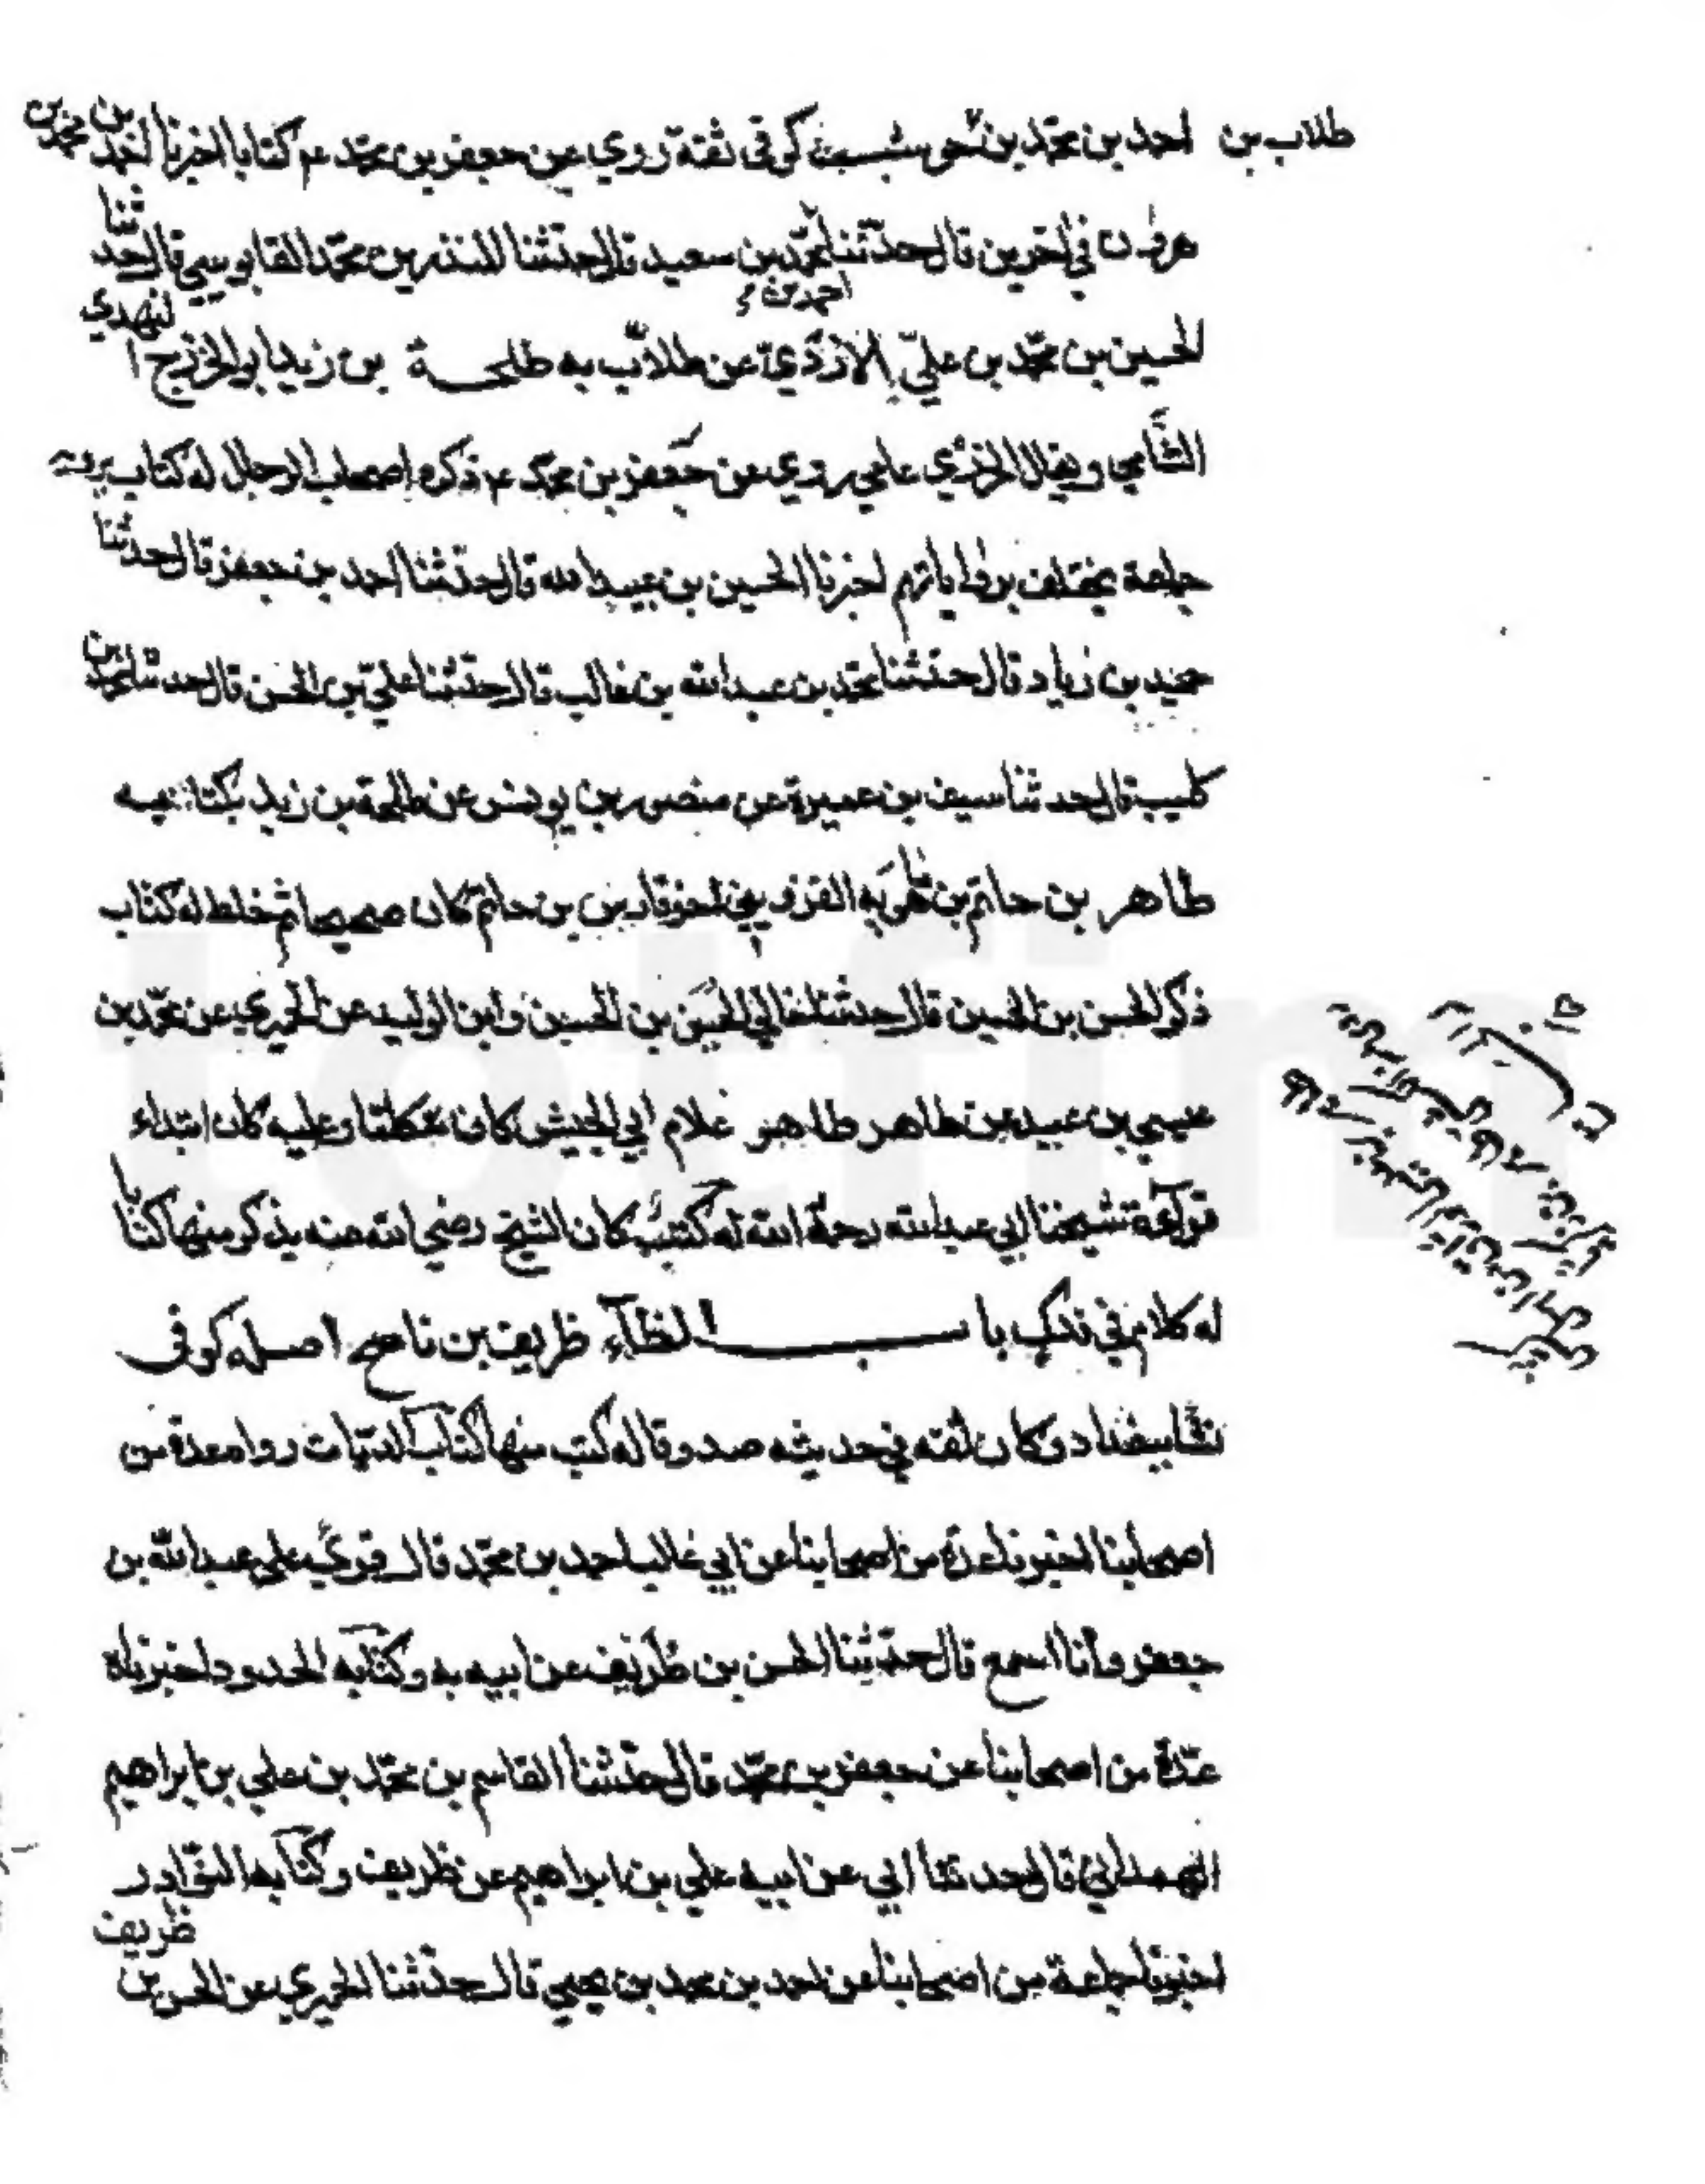 طلاب بن احمد بن محمد بن حوشب كوفي ثقة روي عن جعفر بن محمد عم كتابا اخبرنا احمد بن محمد بن
هرون في اخرين قال حدثنا احمد بن محمد بن سعيد قال حدثنا المنذر بن محمد القابوسي قال حدثنا
الحسين بن محمد بن علي الازدي عن طلاب به طلحة بن زيد ابو الخزرج النهدي
الشامي ويقال الخزري عامي روي عن جعفر بن محمد عم ذكره اصحاب الرجال له كتاب يرويه
جماعة يختلف برواياتهم اخبرنا الحسين بن عبيد الله قال حدثنا احمد بن جعفر قال حدثنا
حميد بن زياد قال حدثنا محمد بن عبد الله بن غالب قال حدثنا علي بن الحسن قال حدثنا محمد بن
كليب قال حدثنا سيف بن عميرة عن منصور بن يونس عن طلحة بن زيد بكتابه
طاهر بن حاتم بن ماهويه القزويني اخو فارس بن حاتم كان صحيحا ثم خلط له كتاب
ذكر الحسن بن الحسين قال حدثنا خالي الحسين بن الحسين وابن الوليد عن الحميري عن محمد بن
عيسي بن عبيد عن طاهر طاهر غلام ابي الجيش كان متكلما وعليه كان ابتداء
قراءة شيخنا ابي عبد الله رحمة الله له كتب كان الشيخ رضي الله عنه يذكر منها كتابا
له كلام في فدك باب الظاء ظريف بن ناصح اصله كوفي
نشا ببغداد وكان ثقه في حديثه صدوقا له كتب منها كتاب الديات رواه عدة من
اصحابنا اخبرنا عدة من اصحابنا عن ابي غالب احمد بن محمد قال قري علي عبد الله بن
جعفر وانا اسمع قال حدثنا الحسن بن ظريف عن ابيه به وكتابه الحدود اخبرناه
عدة من اصحابنا عن جعفر بن محمد قال حدثنا القاسم بن محمد بن علي بن ابراهيم
الهمداني قال حدثنا ابي عن ابيه علي بن ابراهيم عن ظريف وكتابه النوادر
اخبرنا جماعة من اصحابنا عن احمد بن محمد بن يحيي قال حدثنا الحميري عن الحسن بن ظريف